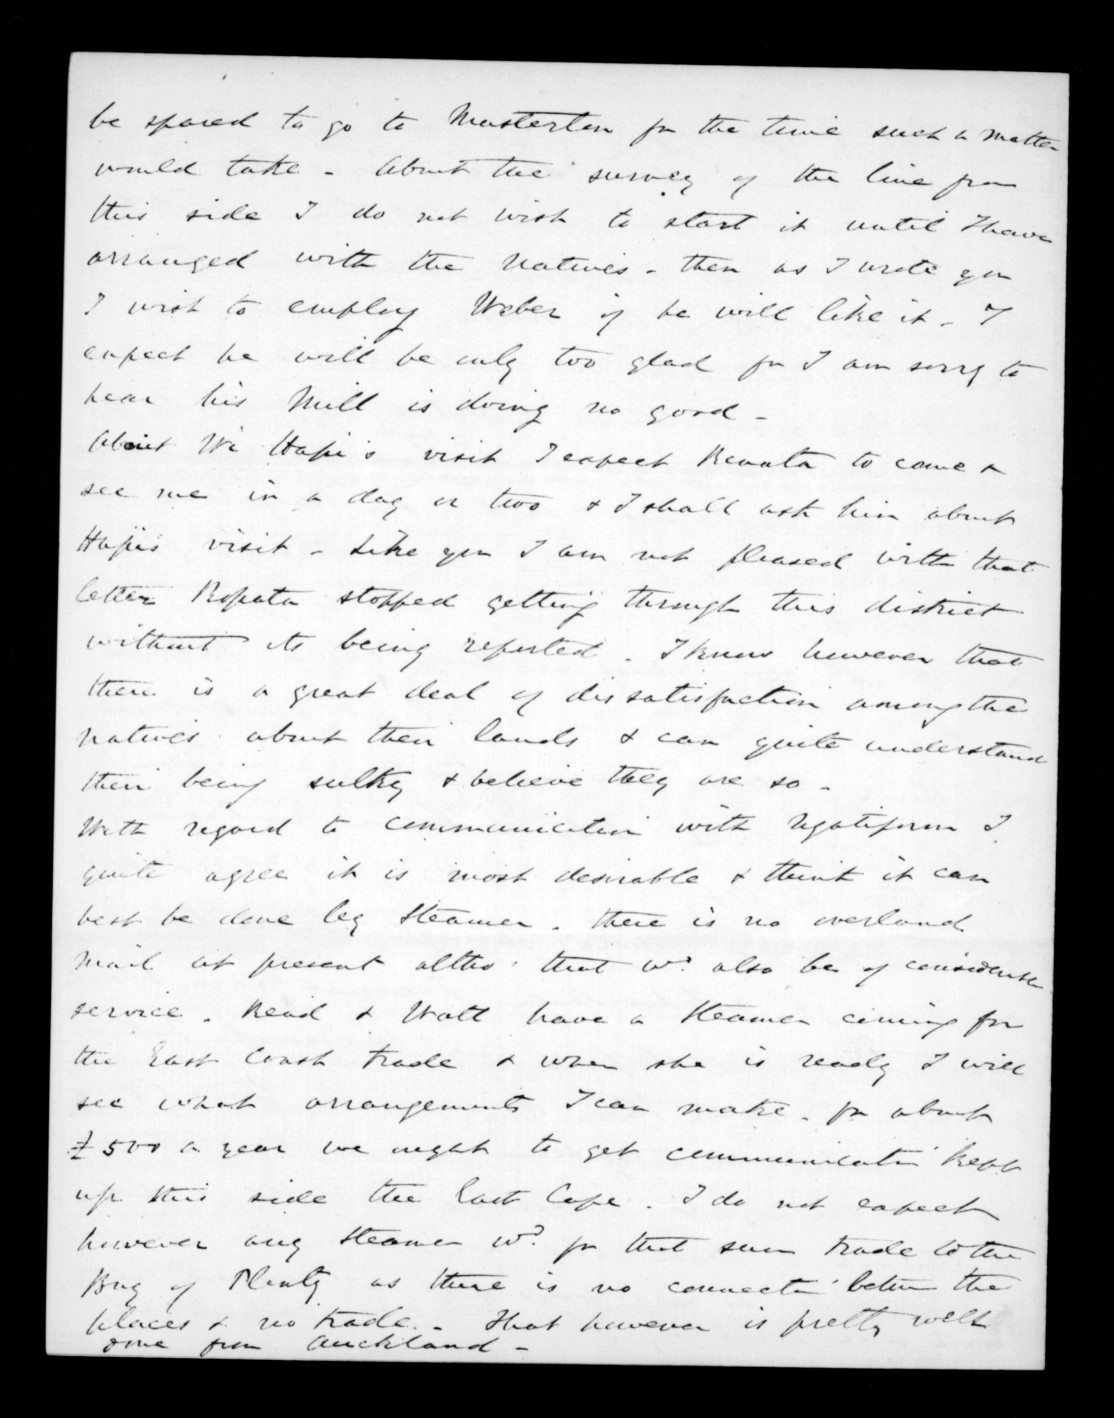 be spared to go to Masterton for the time such a matter
would take - About the survey of the line from
this side I do not wish to start it until I have
arranged with the Natives - then as I wrote you
I wish to employ Weber if he will like it - I
expect he will be only too glad for I am sorry to
hear his Mill is doing no good -
About Wi Hapi's visit I expect Renata to come &
see me in a day or two & I shall ask him about
Hapi's visit - Like you I am not pleased with that
letter Ropata stopped getting through this district
without its being reported. I know however that
there is a great deal of dissatisfaction among the
natives about their lands & can quite understand
their being sulky & believe they are so -
With regard to communication with Ngatiporou I
quite agree it is most desirable & think it can
best be done by Steamer. There is no overland
mail at present altho' that wd. also be of considerable
service. Read & Watt have a Steamer coming for
the East Coast trade & when she is ready I will
see what arrangements I can make. for about
£500 a year we ought to get communicatn kept
up this side the East Cape. I do not expect
however any Steamer wd. for that sum trade to the
Bay of Plenty as there is no connectn betwn the
places & no trade. - That however is pretty well
done from Auckland -